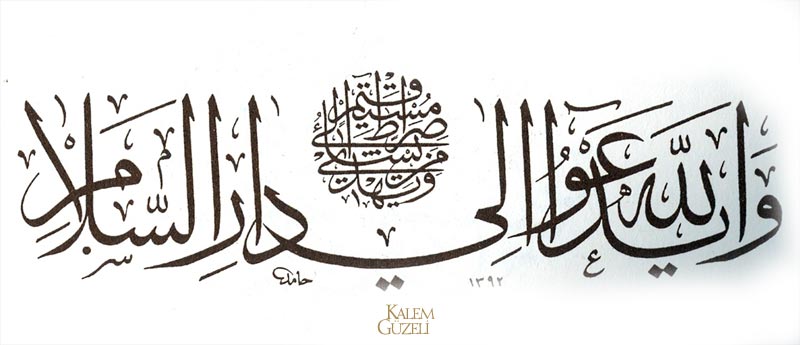 والله يدعوا الى دار السلام
ويهدى من يشاء الى صراط مستقيم
حامد
١٣٩٢
KALEM
GÜZELİ